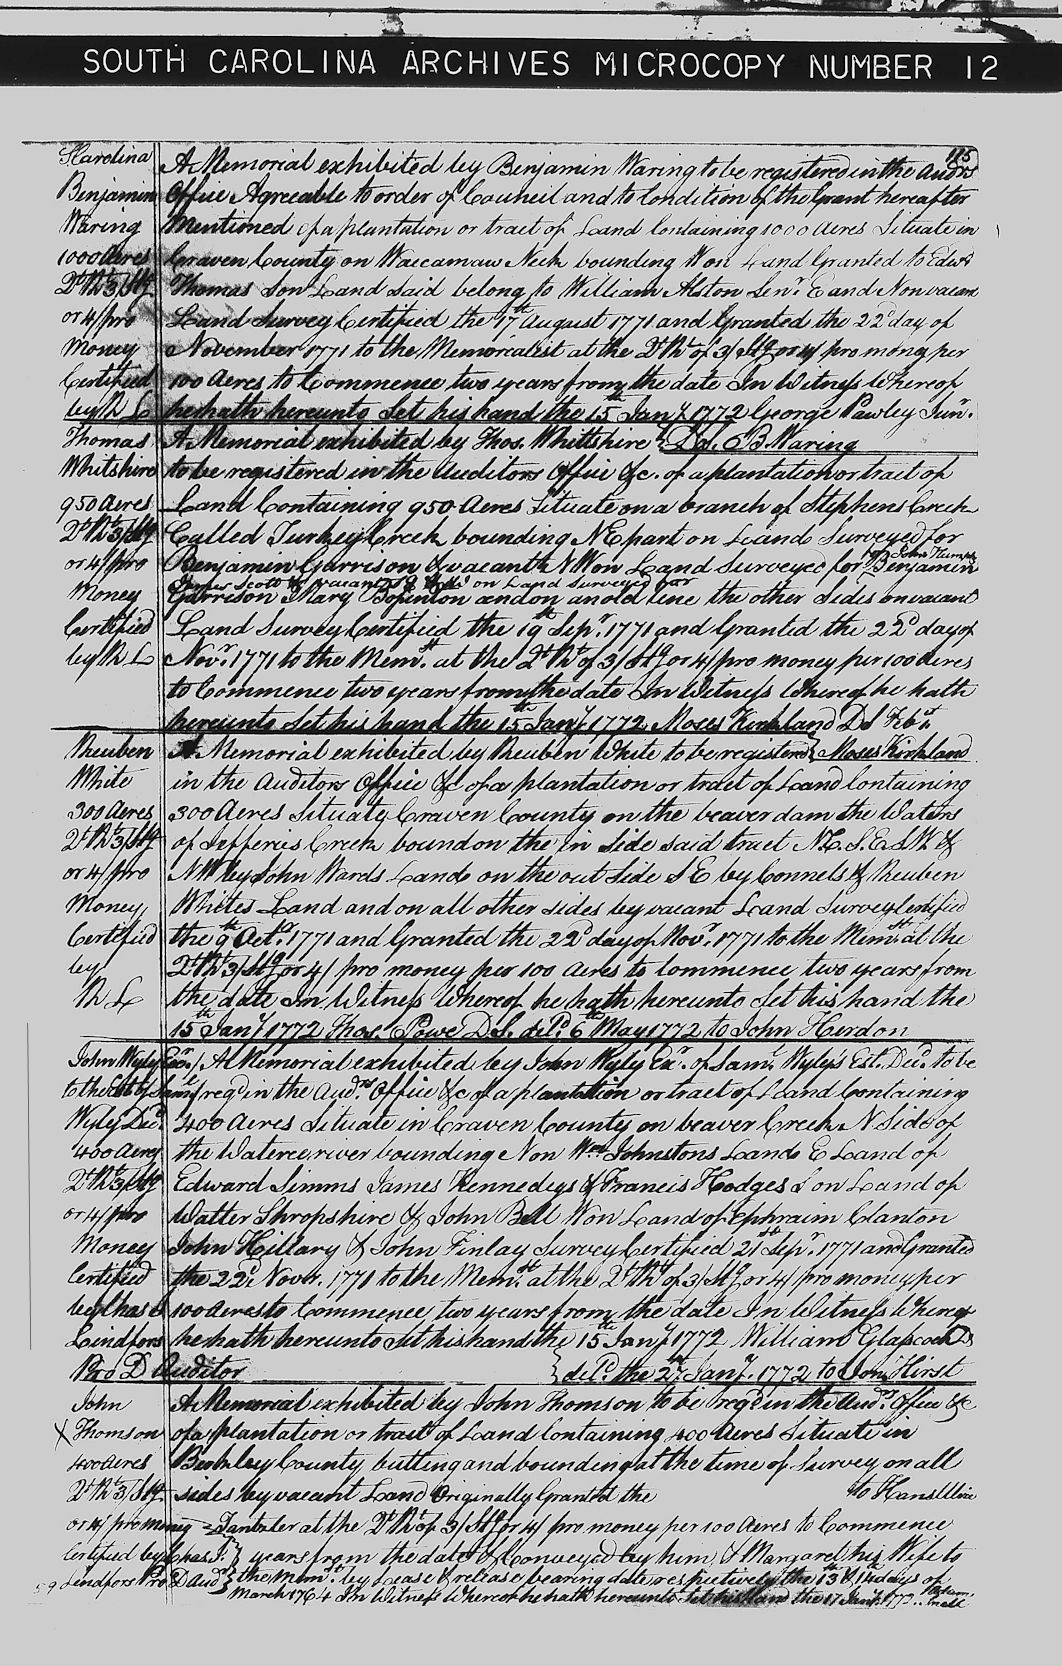 SOUTH CAROLINA ARCHIVES MICROCOPY NUMBER 12
115
S Carolina
Benjamin
Waring
1000 Acres
Qt Rt 3/ Stg
or 4/ pro
Money
Certified
by R L
A Memorial exhibited by Benjamin Waring to be registered in the Audrs
Office Agreeable to order of Council and to Condition of the Grant hereafter
Mentioned of a plantation or tract of Land Containing 1000 Acres Situate in
Craven County on Waccamaw Neck bounding W on Land Granted to Edwd
Thomas S on Land said belong to William Alston Senr. E and N on vacant
Land Survey Certified the 17th August 1771 and Granted the 22d day of
November 1771 to the Memorialist at the Qt Rt of 3/ Stg or 4/ pro money per
100 Acres to Commence two years from the date In Witness Whereof
he hath hereunto Set his hand the 15th Jany 1772 George Pawley Junr.
Dd. B. Waring
Thomas
Whitshire
950 Acres
Qt Rt 3/ Stg
or 4/ pro
Money
Certified
by R L
A Memorial exhibited by Thos. Whittshire
to be registered in the Auditors Office &c. of a plantation or tract of
Land Containing 950 Acres Situate on a branch of Stephens Creek
Called Turkey Creek bounding N E part on Land Surveyed for
Benjamin Garrison & vacant N W on Land Surveyed for Benjamin
James Scott & vacant on Land Surveyed for
Garrison Mary Bopinton and on an old line the other Sides on vacant
Land Survey Certified the 19th Sepr. 1771 and Granted the 22d day of
Novr. 1771 to the Memst. at the Qt Rt of 3/ Stg or 4/ pro money per 100 Acres
to Commence two years from the date In Witness Whereof he hath
hereunto Set his hand the 15th Jany 1772 Moses Kirkland D S
Moses Kirkland
Reuben
White
300 Acres
Qt Rt 3/ Stg
or 4/ pro
Money
Certified
by
R L
A Memorial exhibited by Reuben White to be registered
in the Auditors Office &c of a plantation or tract of Land Containing
300 Acres Situate Craven County on the beaver dam the Waters
of Jefferis Creek bound on the in Side said tract N E. S. E. S W &
N W by John Wards Land on the out Side S E by Connels & Reuben
Whites Land and on all other sides by vacant Land Survey Certified
the 9th Octr. 1771 and Granted the 22d day of Novr. 1771 to the Memst at the
Qt Rt 3/ Stg or 4/ pro money per 100 Acres to Commence two years from
the date In Witness Whereof he hath hereunto Set his hand the
15th Jany 1772 Thos. Powe D S. deld. 6th May 1772 to John Herdon
John Wyly Exr.
to the Est of Saml
Wyly Decd.
400 Acres
Qt Rt 3/ Stg
or 4/ pro
Money
Certified
by Chas
Lindfors
Pro D Auditor
A Memorial exhibited by John Wyly Exr. of Saml. Wyly's Est. Decd. to be
regd in the Audrs Office &c of a plantation or tract of Land Containing
400 Acres Situate in Craven County on beaver Creek N Side of
the Wateree river bounding N on Wm Johnstons Land E Land of
Edward Simms James Kennedys & Francis Hodges S on Land of
Walter Shropshire & John Bell W on Land of Ephraim Clanton
John Hillary & John Finlay Survey Certified 21st Sepr. 1771 and Granted
the 22d. Novr. 1771 to the Memst. at the Qt Rt of 3/ Stg or 4/ pro money per
100 Acres to Commence two years from the date In Witness Whereof
he hath hereunto Set his hand the 15th Jany 1772 William Glascock D S
deld. the 27 Jany. 1772 to Hirst
John
X Thomson
400 Acres
Qt Rt 3/ Stg
or 4/ pro money
Certified by Chas J.
Lindfors Pro D Audr
A Memorial exhibited by John Thomson to be regd in the Audrs Office &c
of a plantation or tract of Land Containing 400 Acres Situate in
Berkley County butting and bounding at the time of Survey on all
sides by vacant Land Originally Granted the to Hans Ulric
at the Qt Rt of 3/ Stg or 4/ pro money per 100 Acres to Commence
years from the date & Conveyed by him & Margaret his Wife to
the Memst. by Lease & release bearing date respectively the 13th & 14th days of
March 1764 In Witness Whereof he hath hereunto Set his Hand the 17 Jany. 1772.